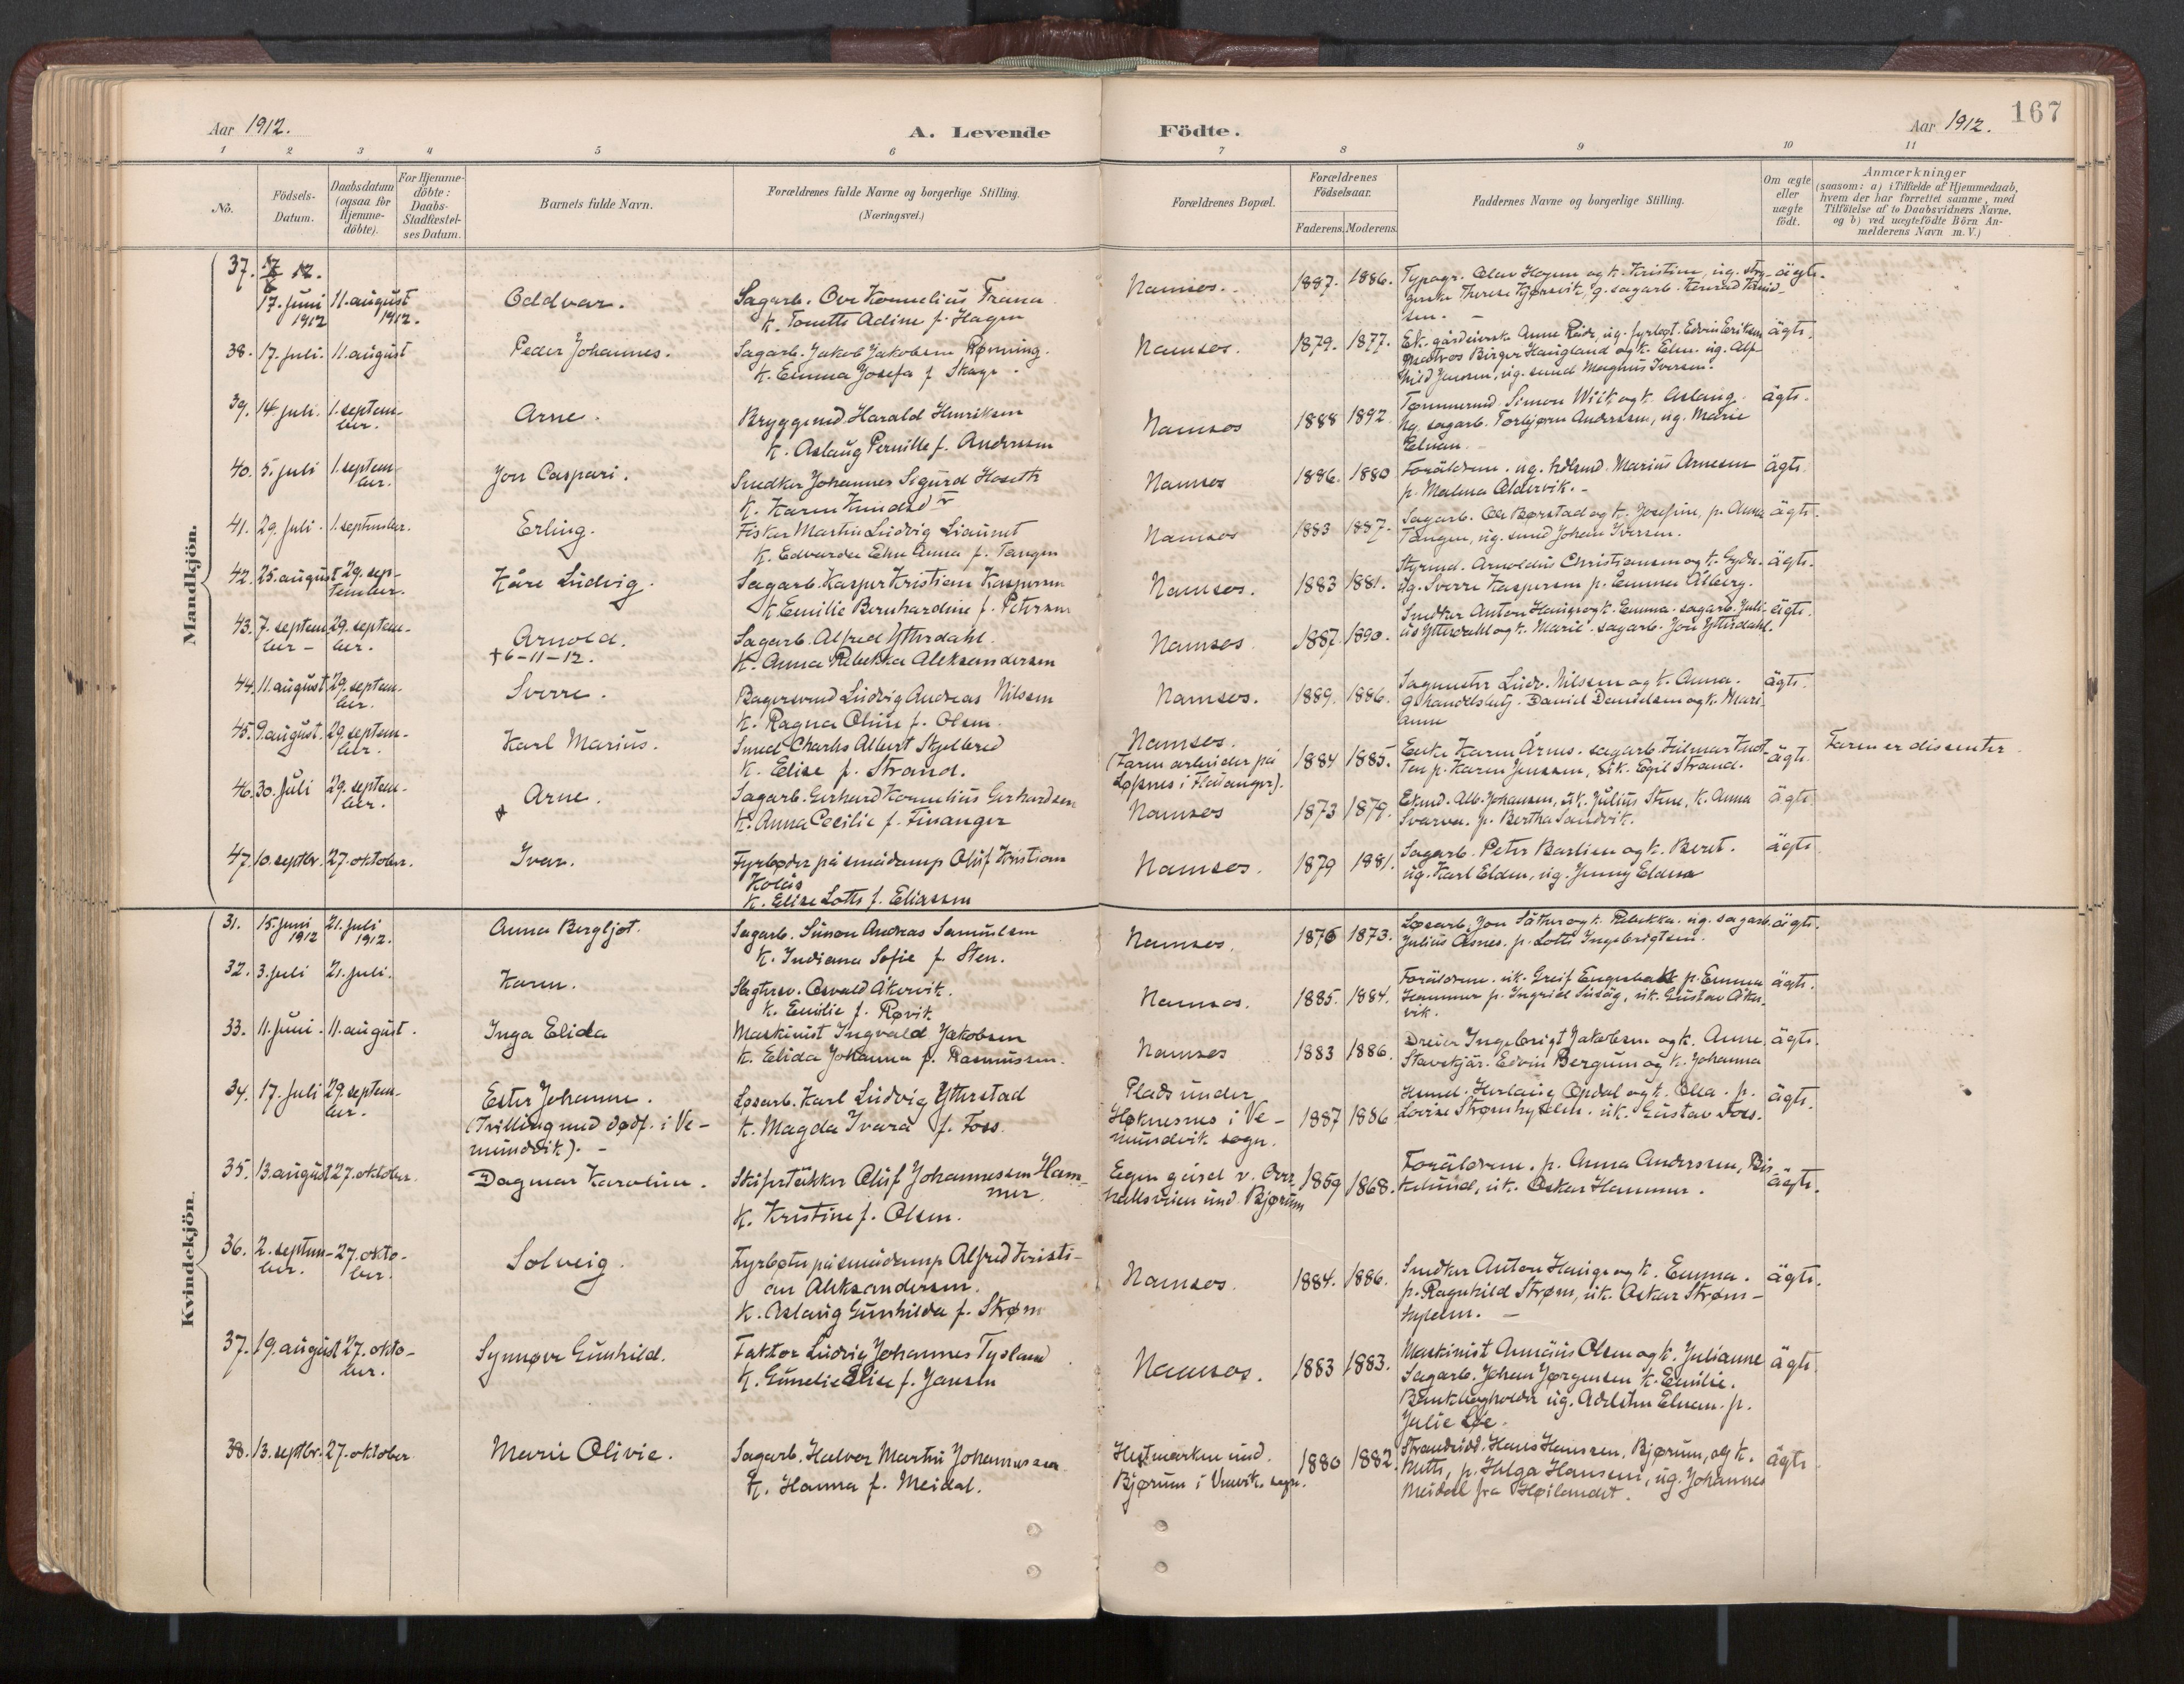 Aar 1912.
A. Levende
Födte.
Aar 1912.
167
1 2 3 4 5 6 7 8 9 10 11
No.
Födsels-Datum.
Daabsdatum (ogsaa for Hjemme-döbte).
For Hjemme-döbte: Daabs-Stadfæstel-ses Datum.
Barnets fulde Navn.
Forældrenes fulde Navne og borgerlige Stilling.
(Næringsvei.)
Forældrenes Bopæl.
Forældrenes Födselsaar.
Faderens. Moderens.
Faddernes Navne og borgerlige Stilling.
Om ægte eller uægte födt.
Anmærkninger
(saasom: a) i Tilfælde af Hjemmedaab,
hvem der har forrettet samme, med
Tilföielse af to Daabsvidners Navne.
og b) ved uægtefödte Börn An-
melderens Navn m.V.)
Mandkjön.
37. 17. juni 1912 11. august 1912. Oddvar. Sagarb. Ove Kornelius Frana
K. Tonette Adine f. Hagen
Namsos. 1887. 1886. Typogr. Olav Hagen og k. Kristine, ug. ägte.
38. 17. juli. 11. august Peder Johannes. Sagarb. Jakob Jakobsen Rønning.
K. Emma Josefa f. Skage.
Namsos. 1879. 1877. Matros Birger Haugland og k. ägte.
ug. smed Magnus Iversen.
39. 14. juli. 1. septem-
ber. Arne. Bryggemd. Harald Henriksen
K. Aslaug Pernille f. Andersen
Namsos 1888 1892. Tømmermd. Simon Wiik og k. Aslaug. ägte.
Ug. sagarb. Torbjørn Anderssen, ug. Marie
Elnan.
40. 5. juli 1. septem-
ber. Jon Caspari. Snedker Johannes Sigurd Hoseth
K. Karen Knudsdtr
Namsos 1886. 1880 Foräldrene. ug. Marius Arnesen ägte.
p. Malena Oldervik.
41. 29. juli. 1. september. Erling. Fisker Martin Ludvig Liaunet
K. Edvarda Anna f. Tangen
Namsos 1883 1887. Sagarb. Ole Børstad og k. Josefine, p. Anna ägte.
Tangen, ug. smed Johan Iversen.
42. 25. august 29. sep-
tember. Kåre Ludvig. Sagarb. Kasper Kristian Kaspersen
K. Emilie Bernhardine f. Petersen
Namsos. 1883 1881. Styrmd. Arnoldus Christiansen og k. Gyda. ägte.
Ug. Sverre Kaspersen p. Emma Alberg.
43. 7. septem-
ber 29. septem-
ber. Arnold.
† 6-11-12. Sagarb. Alfred Ytterdahl.
K. Anna Rebekka Aleksandersen
Namsos. 1887. 1890. Snedker Anton Hauge og k. Emma. sagarb. Juli- ägte.
us Ytterdahl og k. Marie. sagarb. Jon Ytterdahl.
44. 11. august 29. septem-
ber. Sverre. Bagersvend Ludvig Andreas Nilssen
K. Ragna Oline f. Olsen.
Namsos. 1889. 1886. Sagmester Ludv. Nilssen og k. Anna. ägte.
Daniel Danielsen og k. Mari-
anne
45. 9. august. 29. septem-
ber. Karl Marius. Smed Charles Albert Skjelbred
K. Elise f. Strand.
Namsos.
(Faren arbeider på
Løfsnes i Fladanger).
1884 1885. Enke Karen Årnes. sagarb. Hilmar
p. Karen Jenssen, uk. Egil Strand. ägte. Faren er dissenter.
46. 30. juli 29. septem-
ber. Arne. Sagarb. Gerhard Kornelius Gerhardsen
K. Anna Cecilie f. Finanger
Namsos 1873 1879. Alb. Johansen, uk. Julius Stene, k. Anna ägte.
Svarva. p. Bertha Sandvik.
47. 10. septbr. 27. oktober. Ivar. Fyrbøder på smådamp Oluf Kristian
Kolås
K. Elise Lotte f. Eliassen
Namsos. 1879 1881. Sagarb. Peter Barlien og k. Beret. ägte
ug. Karl Elden, ug. Jenny Elden
Kvindekjön.
31. 15. juni 1912 21. juli 1912. Anna Bergljot. Sagarb. Simon Andreas Samuelsen
K. Indiana Sofie f. Sten.
Namsos. 1876 1873. Løsarb. Jon Säther og k. Rebekka. ug. sagarb. ägte.
Julius Asnes. p. Lotte Ingebrigtsen.
32. 3. juli 21. juli. Karen. Slagtersv. Osvald Åkervik.
K. Emilie f. Røvik
Namsos. 1885. 1884. Foräldrene. uk. Greif Engesbakk p. Emma ägte.
Hammer p. Ingrid uk. Gustav Åker-
vik.
33. 11. juni. 11. august. Inga Elida Maskinist Ingvald Jakobsen
K. Elida Johanna f. Rasmussen.
Namsos 1883 1886. Dreier Ingebrigt Jakobsen og k. Anna ägte.
Stavskjär. Edvin Bergum og k. Johanna
34. 17. juli 29. septem-
ber. Ester Johanne.
(Tvilling med dødf. i Ve-
mundvik). Løsarb. Karl Ludvig Ytterstad
K. Magda Ivara f. Foss.
Plads under
Høknesnes i Ve-
mundvik sogn.
1887 1886 Herlaug Opdal og k. Olla. p. ägte.
Lovise Strømhylden. uk. Gustav Foss.
35. 13. august 27. oktober. Dagmar Karoline. Skifertäkker Oluf Johannessen Ham-
mer.
K. Kristine f. Olsen.
1859 1868. Foräldrene. p. Anna Andersen, ägte.
uk. Oskar Hammer.
36. 2. septem-
ber. 27. okto-
ber. Solveig. Fyrbøter på smådamp Alfred Kristi-
an Aleksandersen.
K. Aslaug Gunhilda f. Strøm
Namsos. 1884. 1886. Snedker Anton Hauge og k. Emma. ägte.
p. Ragnhild Strøm, uk. Oskar Strøm-
hylden.
37. 19. august 27. okto-
ber. Synnøve Gunhild. Faktor Ludvig Johannes Tysland
K. Gunelie Elise f. Jansen
Namsos. 1883 1883. Maskinist Annäus Olsen og k. Julianne ägte.
Sagarb. Johan Jørgensen k. Emilie.
Bankbogholder ug. Adelsten Elnan. p.
Julie Løe.
38. 13. septbr. 27. oktober Marie Olivie. Sagarb. Halvor Martin Johannessen
K. Hanna f. Meidal.
Hestmarken und.
Bjørum i Vemvik. sogn.
1880 1882. Strandsidd. Hans Hanssen, Bjørum, og k. ägte
Mette, p. Helga Hansen, ug. Johannes
Meidal fra Høilandet.